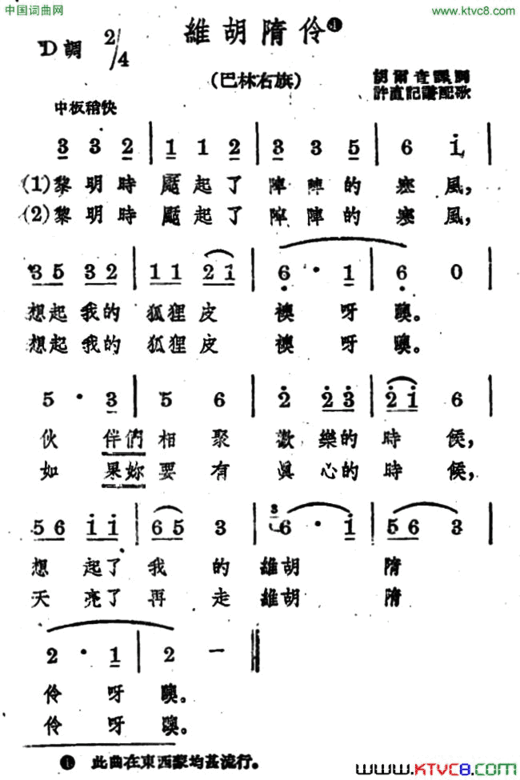 中国词曲网
www.ktvc8.com
維胡隋伶❶
D調 2/4
(巴林右旗)
許直記譜配歌
中板稍快
3 3 2 | 1 1 2 | 3 3 5 | 6 i |
(1)黎明時颳起了陣陣的寒風,
(2)黎明時颳起了陣陣的寒風,
35 32 | 11 21 | 6 · 1 | 6 0 |
想起我的狐狸皮襖呀噢。
想起我的狐狸皮襖呀噢。
5 · 3 | 5 6 | 2 23 | 21 6 |
伙伴們相聚歡樂的時候,
如果妳要有眞心的時候,
56 11 | 65 3 | 6 · 1 | 56 3 |
想起了我的維胡隋
天亮了再走維胡隋
2 · 1 | 2 — ‖
伶呀噢。
伶呀噢。
❶ 此曲在東西蒙均甚流行。
www.KTVC8.com